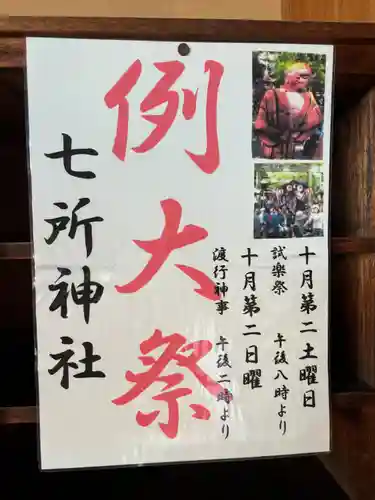 十月第二土曜日
試楽祭 午後八時より
十月第二日曜
渡行神事 午後二時より
例大祭
七所神社